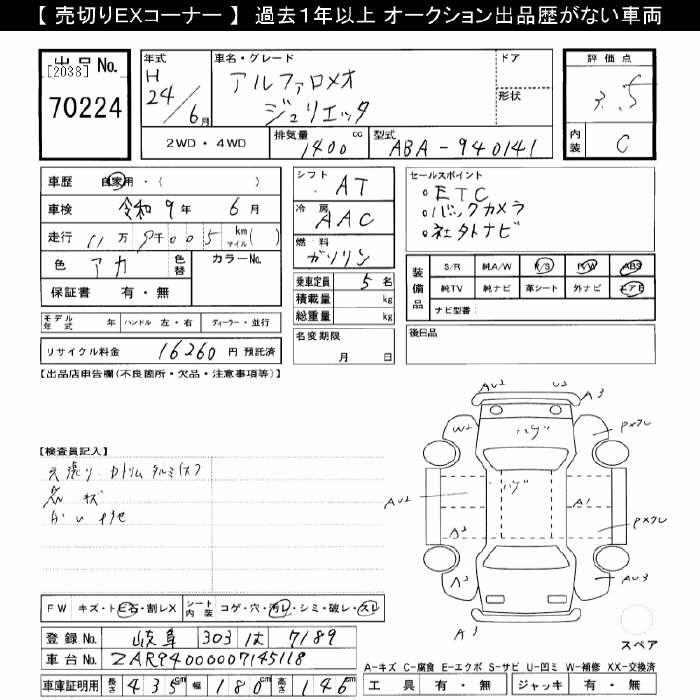 【 売切りEXコーナー 】 過去1年以上 オークション出品歴がない車両
出品 No.
[2038]
70224
年式
H
24/6月
車名・グレード
アルファロメオ
ジュリエッタ
ドア
形状
評価点
3.5
内装 C
2WD・4WD
排気量 1400 cc
型式 ABA-940141
車歴 自家用・( )
車検 令和 9年 6月
走行 万 千005 km マイル( )
色 アカ
色替
カラーNo.
保証書 有・無
シフト AT
冷房 AAC
燃料 ガソリン
乗車定員 5名
積載量 kg
総重量 kg
セールスポイント
○ETC
○バックカメラ
○社外ナビ
装備品
S/R 純A/W P/S P/W ABS
純TV 純ナビ 革シート 外ナビ エアB
ナビ型番:
モデル年式 年 ハンドル 左・右 ディーラー・並行
名変期限 月 日
後日品
リサイクル料金 16260 円 預託済
【出品店申告欄(不良箇所・欠品・注意事項等)】
AU2 U2 A3
W2 ハゲ PXワレ
【検査員記入】
天張り Dトリム タルミ
ハゲ
AU2 A1
A2 PXワレ
A2 AU3
A3
FW キズ・トビ石・割レX シート内装 コゲ・穴・汚レ・シミ・破レ・スレ
登録No. 岐阜 303 は 7189
車台No. ZAR94000007145118
車庫証明用 長さ 435cm 幅 180cm 高さ 146cm
スペア
A-キズ C-腐食 E-エクボ S-サビ U-凹ミ W-補修 XX-交換済
工具 有・無 ジャッキ 有・無